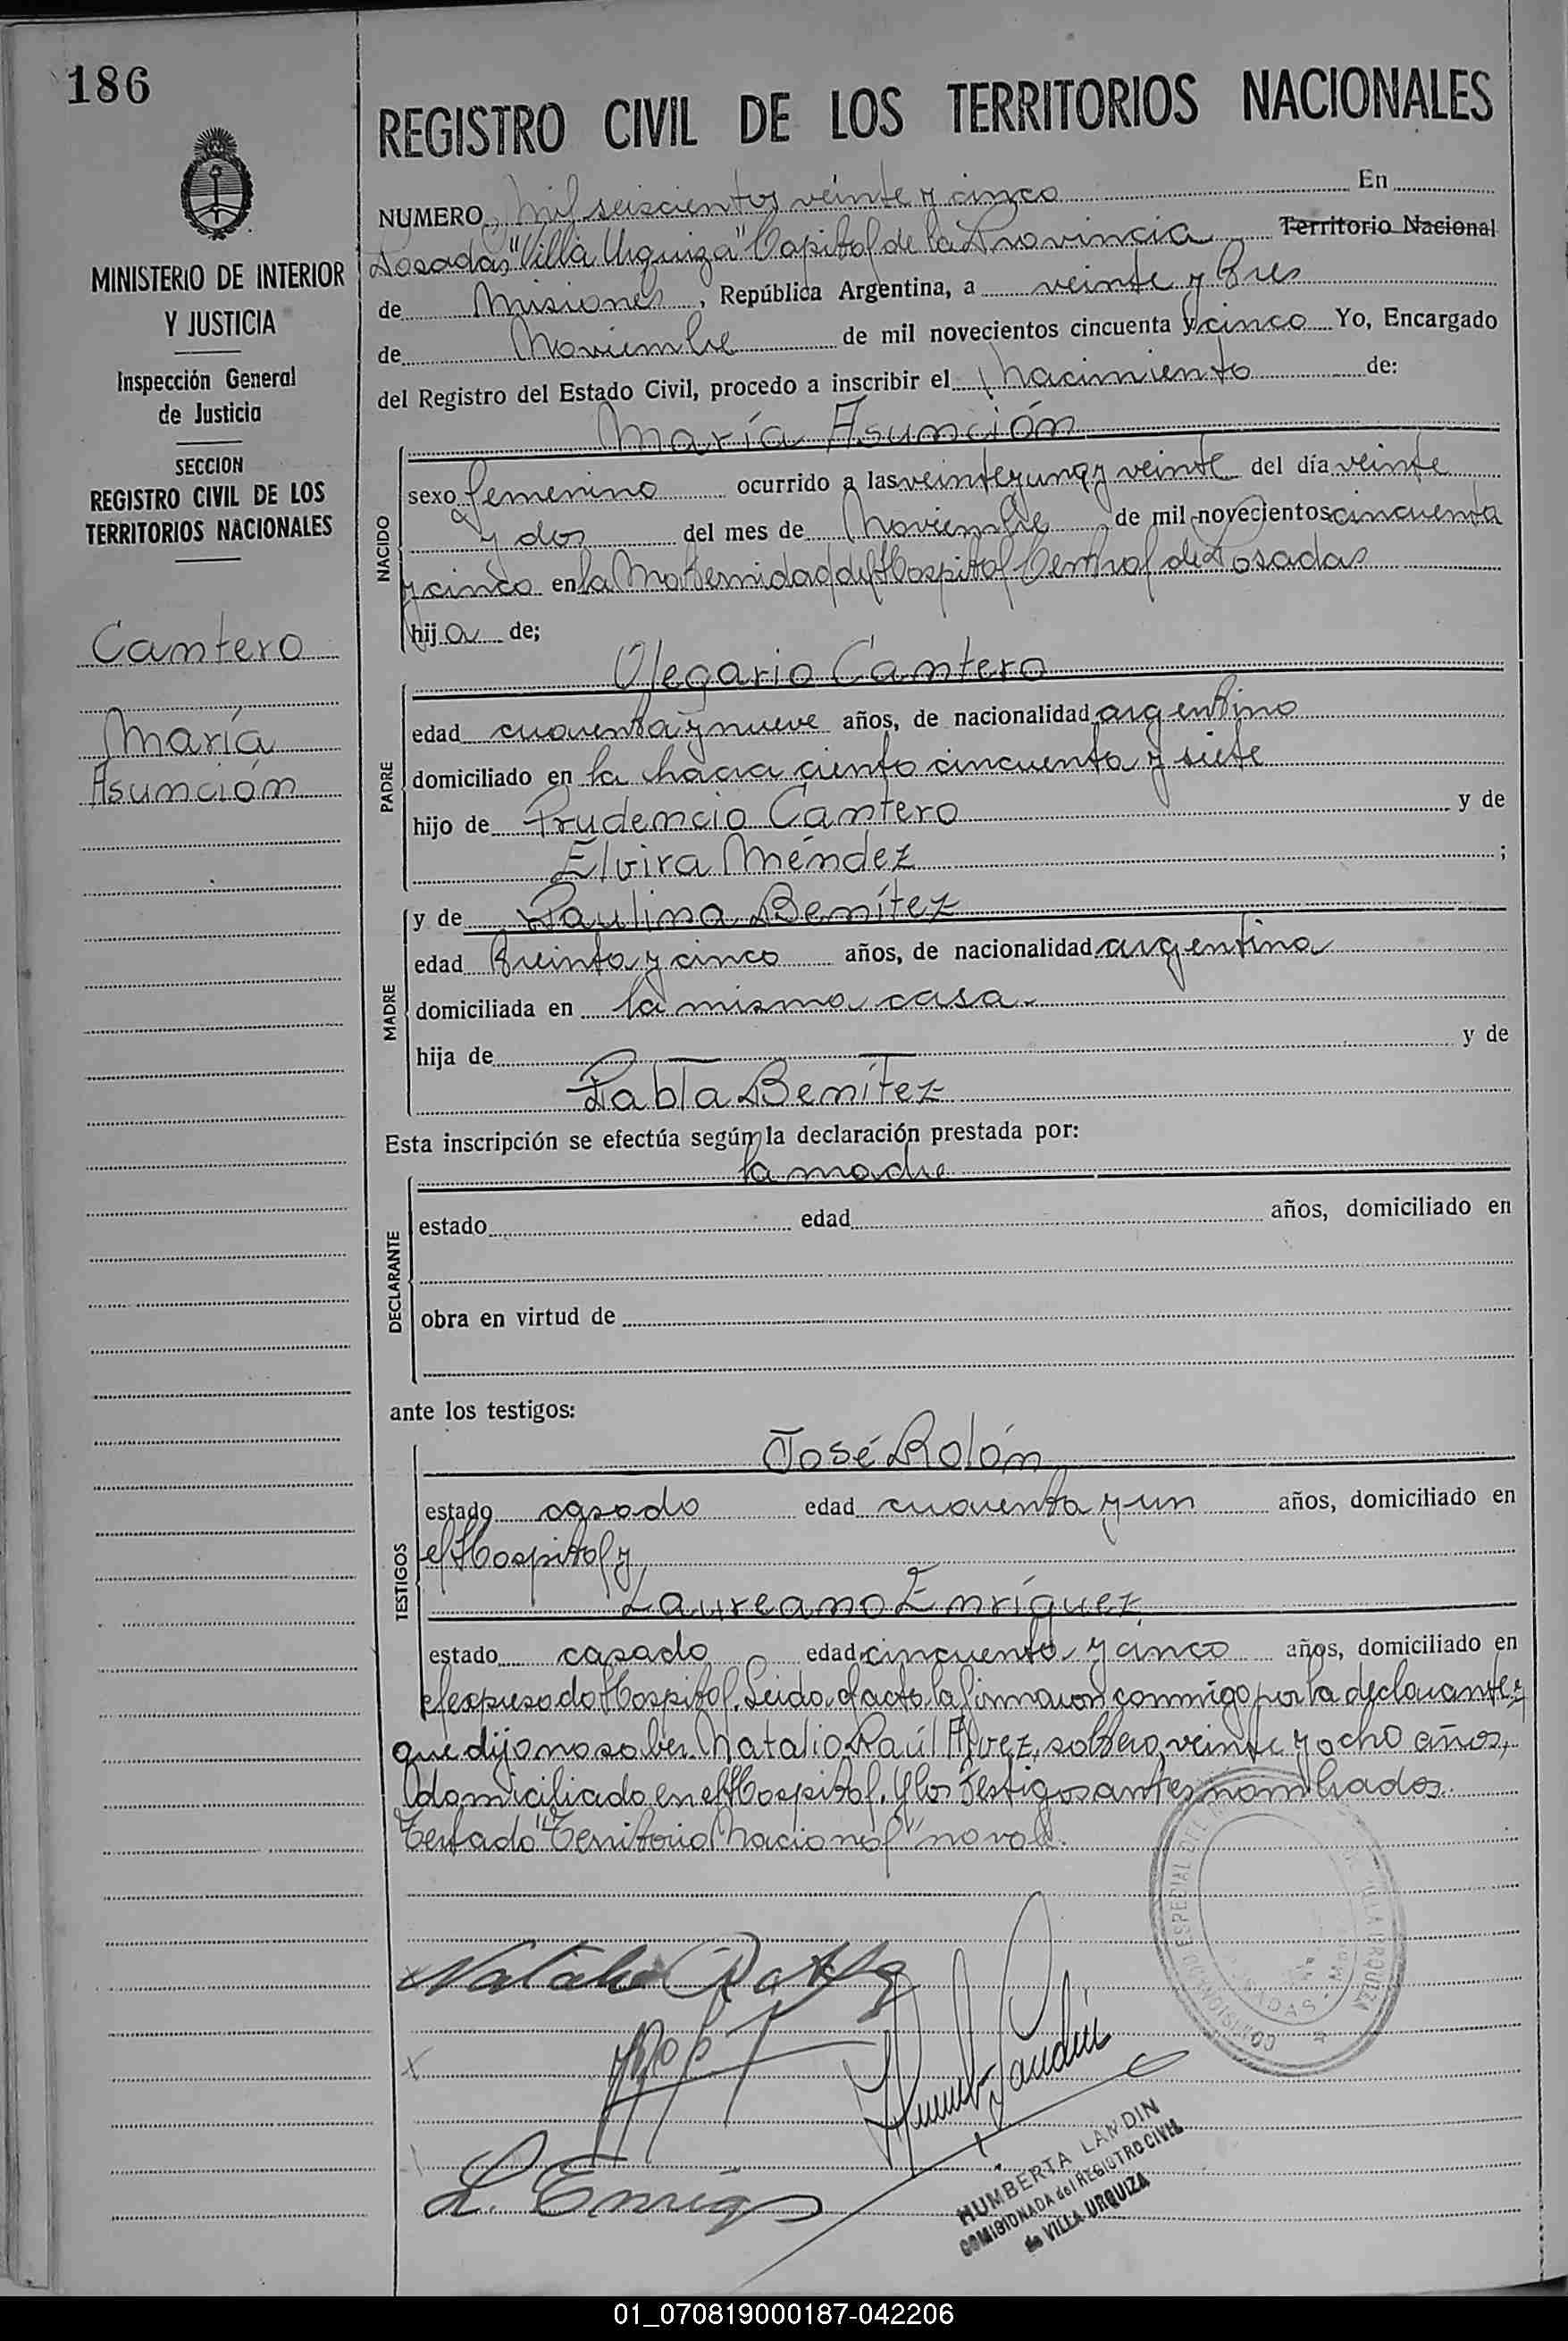 186
REGISTRO CIVIL DE LOS TERRITORIOS NACIONALES
MINISTERIO DE INTERIOR
Y JUSTICIA
Inspección General
de Justicia
SECCION
REGISTRO CIVIL DE LOS
TERRITORIOS NACIONALES
Cantero
María
Asunción
NUMERO Mil seiscientos veinte y cinco En
Posadas "Villa Urquiza" Capital de la Provincia Territorio Nacional
de Misiones, República Argentina, a veinte y tres
de Noviembre de mil novecientos cincuenta y cinco Yo, Encargado
del Registro del Estado Civil, procedo a inscribir el Nacimiento de:
María Asunción
NACIDO
sexo femenino ocurrido a las veinte y una y veinte del día veinte
y dos del mes de Noviembre de mil novecientos cincuenta
y cinco en la Maternidad del Hospital Central de Posadas
hija de;
Olegario Cantero
PADRE
edad cuarenta y nueve años, de nacionalidad argentino
domiciliado en la chacra ciento cincuenta y siete
hijo de Prudencio Cantero y de
Elvira Méndez ;
MADRE
y de Paulina Benítez
edad treinta y cinco años, de nacionalidad argentina
domiciliada en la misma casa.
hija de y de
Pabla Benítez
Esta inscripción se efectúa según la declaración prestada por:
la madre
DECLARANTE
estado edad años, domiciliado en
obra en virtud de
ante los testigos:
José Rolón
TESTIGOS
estado casado edad cuarenta y un años, domiciliado en
el Hospital y
Laureano Enríquez
estado casado edad cincuenta y cinco años, domiciliado en
el expresado Hospital. Leida el acta la firmaron conmigo por la declarante
que dijo no saber Natalio Raúl Alvez, soltero, veinte y ocho años,
domiciliado en el Hospital. Y los testigos antes nombrados.
Testado "Territorio Nacional" no vale.
COMISIONADO ESPECIAL DEL
VILLA URQUIZA
POSADAS
Natalio R
L. Enriq
HUMBERTA LANDIN
COMISIONADA del REGISTRO CIVIL
de VILLA URQUIZA
01_070819000187-042206